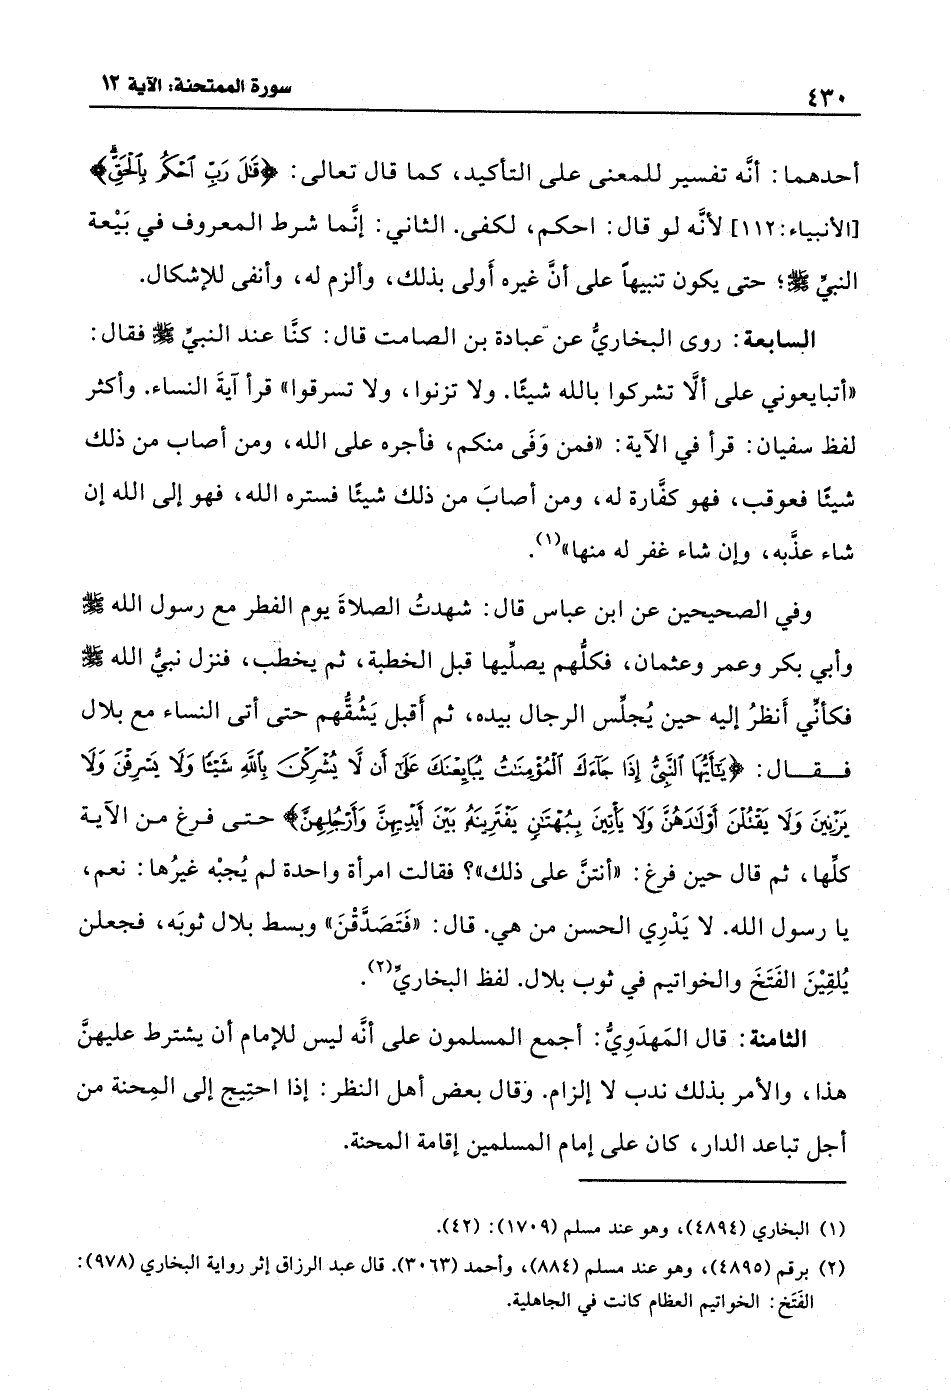 سورة الممتحنة: الآية ١٢
٤٣٠
أحدهما: أنَّه تفسير للمعنى على التأكيد، كما قال تعالى: ﴿قَٰلَ رَبِّ ٱحۡكُم بِٱلۡحَقِّۗ﴾
[الأنبياء:١١٢] لأنَّه لو قال: احكم، لكفى. الثاني: إنَّما شرط المعروف في بَيْعة
النبيِّ ﷺ؛ حتى يكون تنبيهاً على أنَّ غيره أَولى بذلك، وألزم له، وأنفى للإشكال.
السابعة: روى البخاريُّ عن عبادة بن الصامت قال: كنَّا عند النبيِّ ﷺ فقال:
«أتبايعوني على ألَّا تشركوا بالله شيئًا. ولا تزنوا، ولا تسرقوا» قرأ آيةَ النساء. وأكثر
لفظ سفيان: قرأ في الآية: «فمن وَفَى منكم، فأجره على الله، ومن أصاب من ذلك
شيئًا فعوقب، فهو كفَّارة له، ومن أصابَ من ذلك شيئًا فستره الله، فهو إلى الله إن
شاء عذَّبه، وإن شاء غفر له منها»(١).
وفي الصحيحين عن ابن عباس قال: شهدتُ الصلاةَ يوم الفطر مع رسول الله ﷺ
وأبي بكر وعمر وعثمان، فكلُّهم يصلِّيها قبل الخطبة، ثم يخطب، فنزل نبيُّ الله ﷺ
فكأنِّي أَنظرُ إليه حين يُجلِّس الرجال بيده، ثم أَقبل يَشُقُّهم حتى أتى النساء مع بلال
فـقـال: ﴿يَٰٓأَيُّهَا ٱلنَّبِيُّ إِذَا جَآءَكَ ٱلۡمُؤۡمِنَٰتُ يُبَايِعۡنَكَ عَلَىٰٓ أَن لَّا يُشۡرِكۡنَ بِٱللَّهِ شَيۡـٔٗا وَلَا يَسۡرِقۡنَ وَلَا
يَزۡنِينَ وَلَا يَقۡتُلۡنَ أَوۡلَٰدَهُنَّ وَلَا يَأۡتِينَ بِبُهۡتَٰنٖ يَفۡتَرِينَهُۥ بَيۡنَ أَيۡدِيهِنَّ وَأَرۡجُلِهِنَّ﴾ حتى فرغ من الآية
كلِّها، ثم قال حين فرغ: «أنتنَّ على ذلك»؟ فقالت امرأة واحدة لم يُجبْه غيرُها: نعم،
يا رسول الله. لا يَدْرِي الحسن من هي. قال: «فَتَصَدَّقْنَ» وبسط بلال ثوبَه، فجعلن
يُلقِيْنَ الفَتَخَ والخواتيم في ثوب بلال. لفظ البخاريِّ(٢).
الثامنة: قال المَهدَوِيُّ: أجمع المسلمون على أنَّه ليس للإمام أن يشترط عليهنَّ
هذا، والأمر بذلك ندب لا إلزام. وقال بعض أهل النظر: إذا احتِيج إلى المِحنة من
أجل تباعد الدار، كان على إمام المسلمين إقامة المحنة.
(١) البخاري (٤٨٩٤)، وهو عند مسلم (١٧٠٩): (٤٢).
(٢) برقم (٤٨٩٥)، وهو عند مسلم (٨٨٤)، وأحمد (٣٠٦٣). قال عبد الرزاق إثر رواية البخاري (٩٧٨):
الفَتَخ: الخواتيم العظام كانت في الجاهلية.